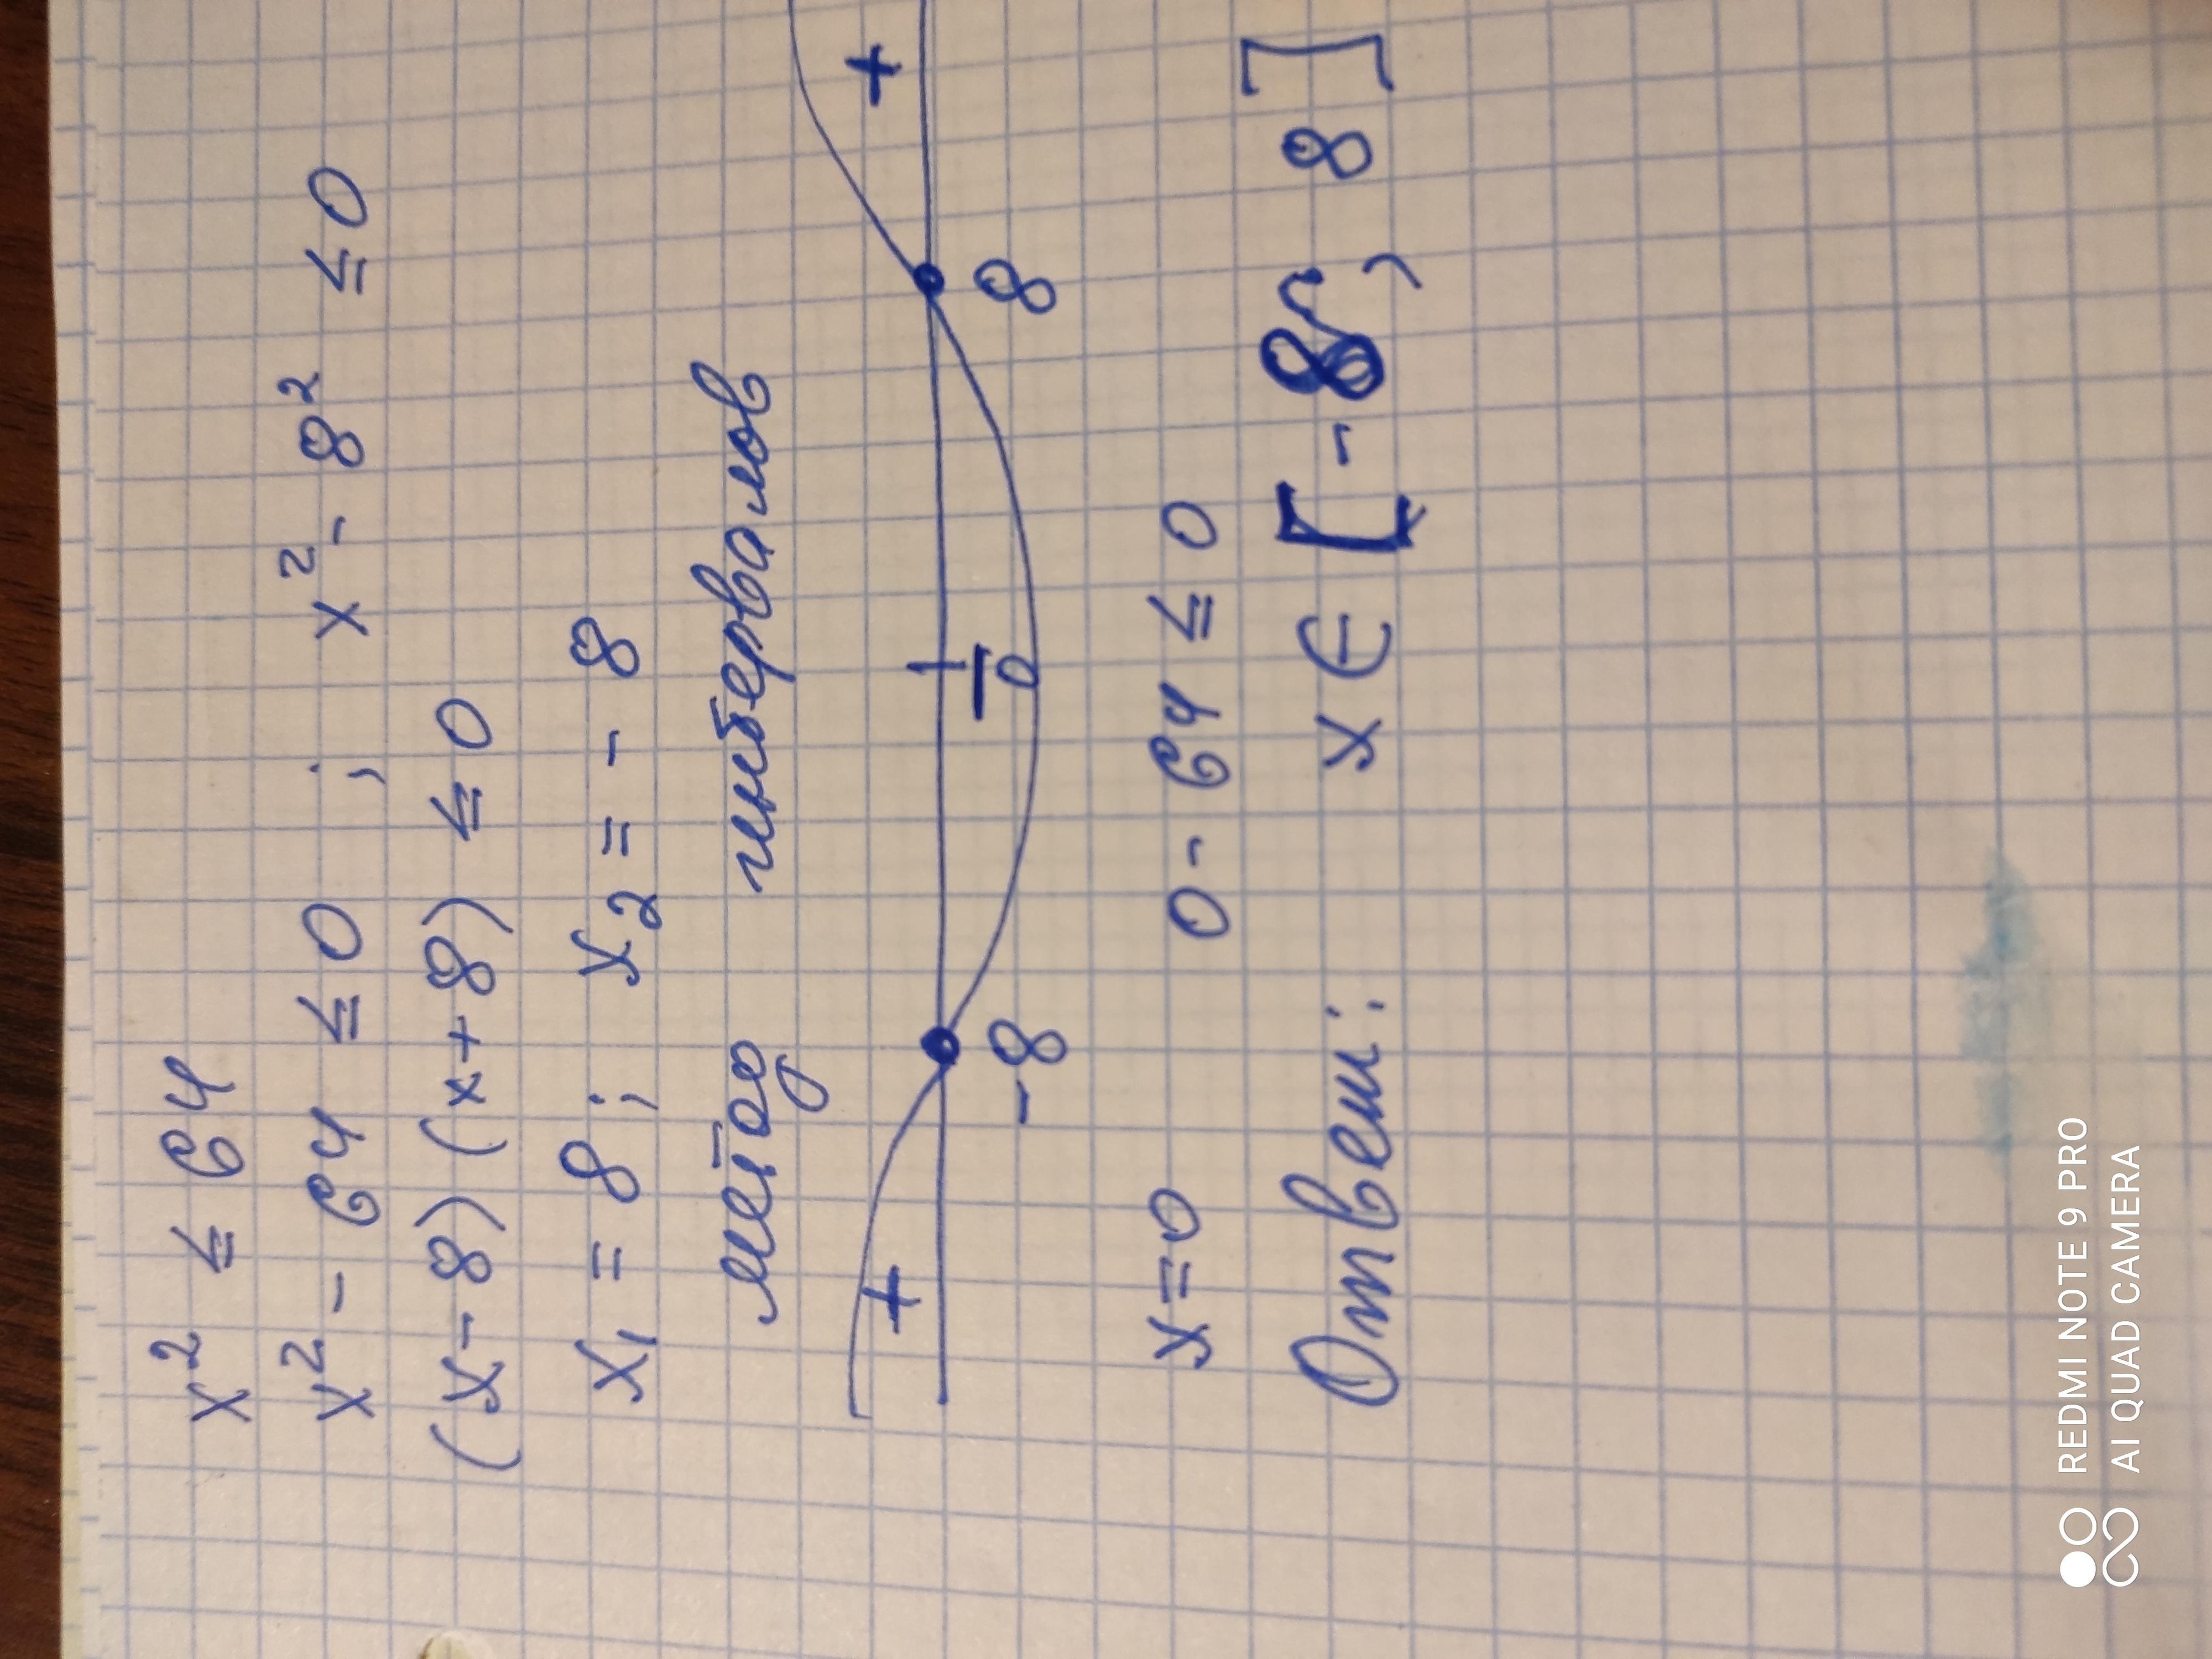 x² ≤ 64
x² - 64 ≤ 0 ; x² - 8² ≤ 0
(x - 8) (x + 8) ≤ 0
x₁ = 8 ; x₂ = - 8
метод интервалов
+ - +
-8 0 8
x = 0 0 - 64 ≤ 0
Ответ: x ∈ [-8; 8]
REDMI NOTE 9 PRO
AI QUAD CAMERA